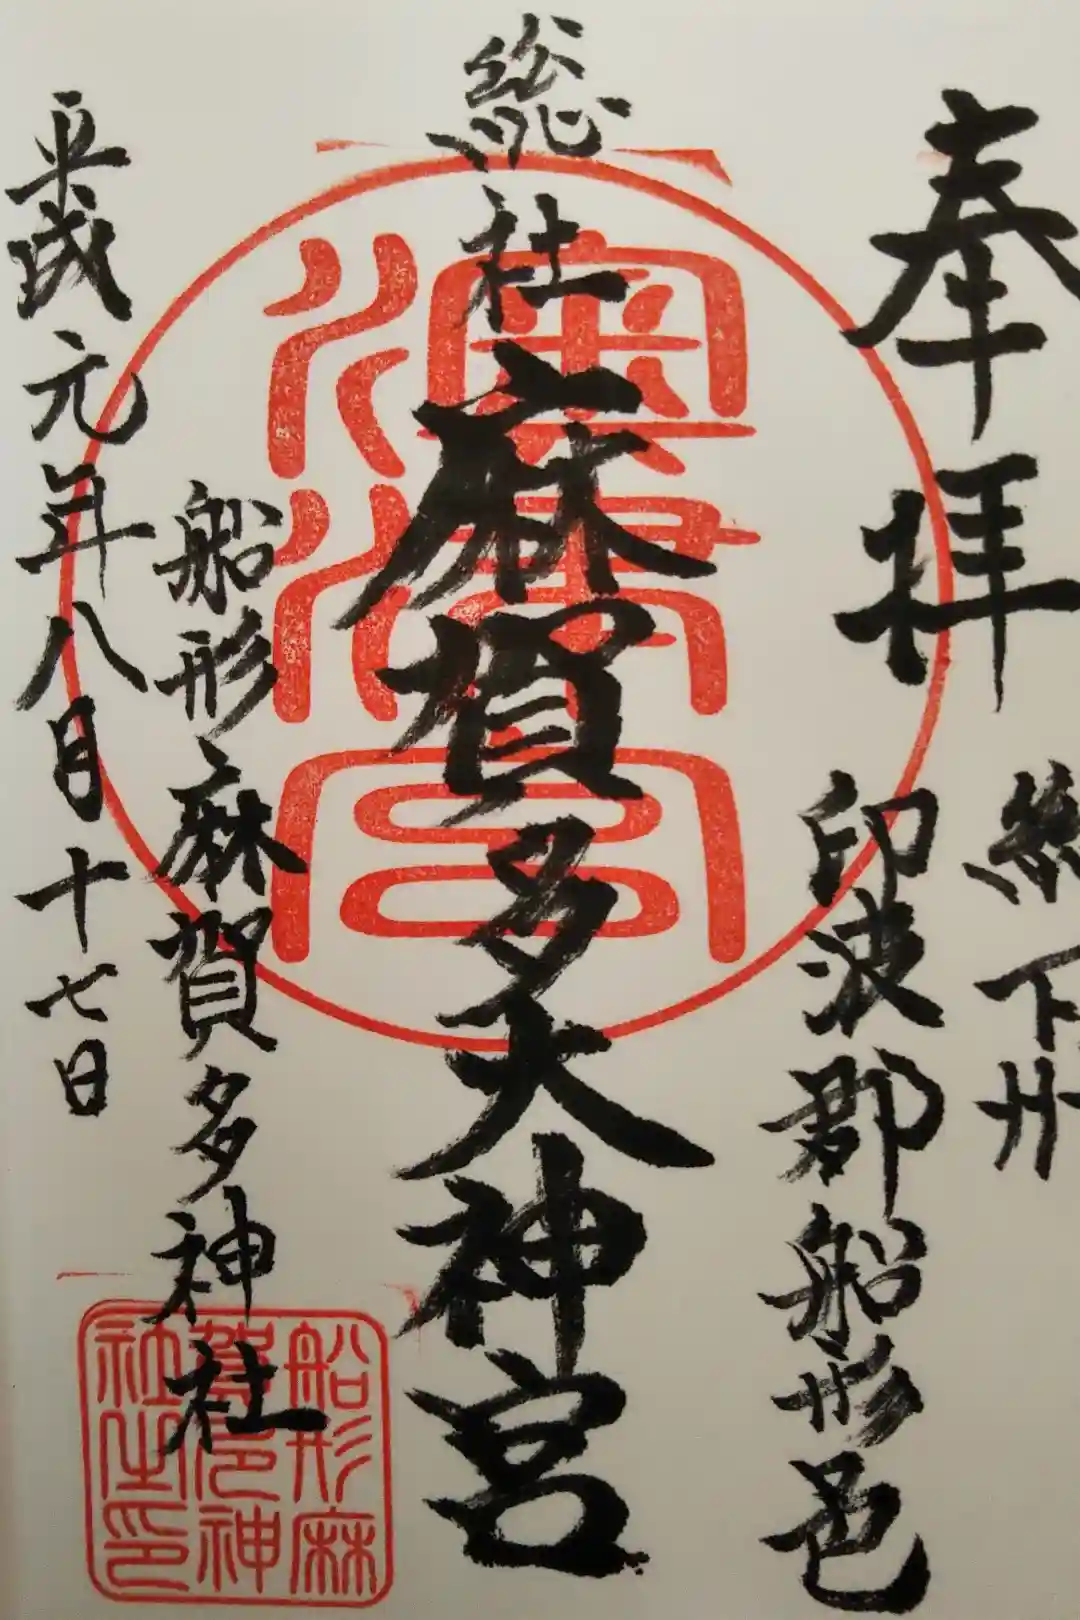 奉拝
総下州
印波郡船形邑
総社麻賀多大神宮
船形麻賀多神社
平成元年八月十七日
澳津宮
船形麻
賀多神
社之印